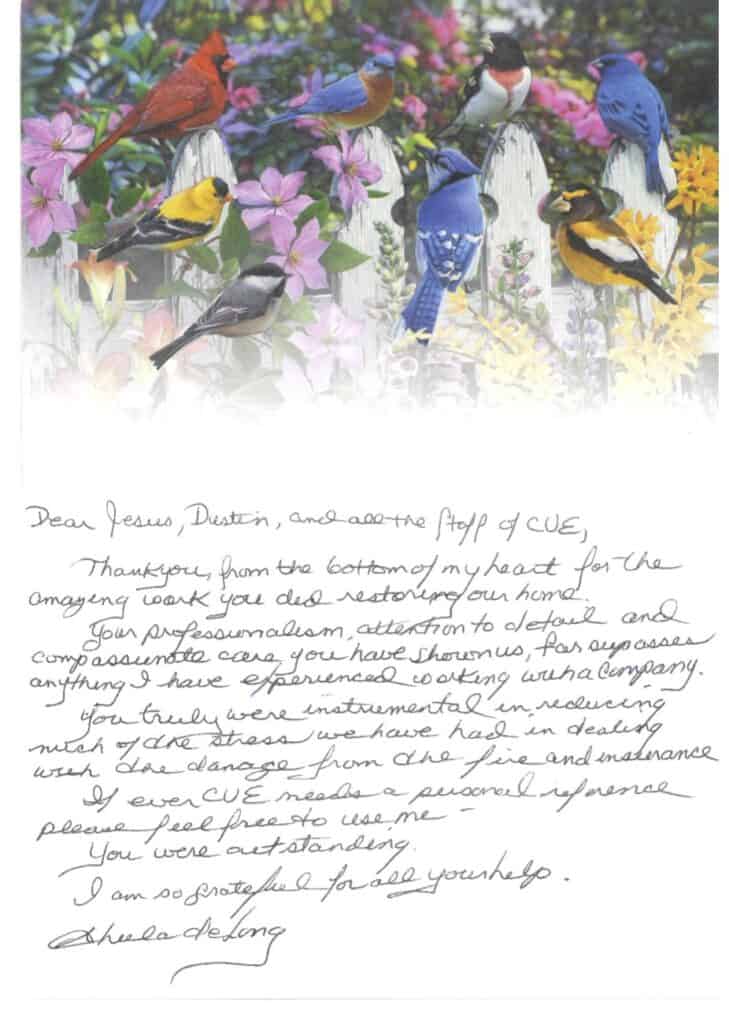 Dear Jesus, Dustin, and all the staff of CUE,
Thankyou, from the bottom of my heart for the
amazing work you did restoring our home.
Your professionalism, attention to detail and
compassionate care you have shown us, far supasses
anything I have experienced working with a company.
You truly were instrumental in reducing
much of the stress we have had in dealing
with the damage from the fire and insurance
If ever CUE needs a personal reference
please feel free to use me -
You were outstanding.
I am so grateful for all your help.
Sheila deLong